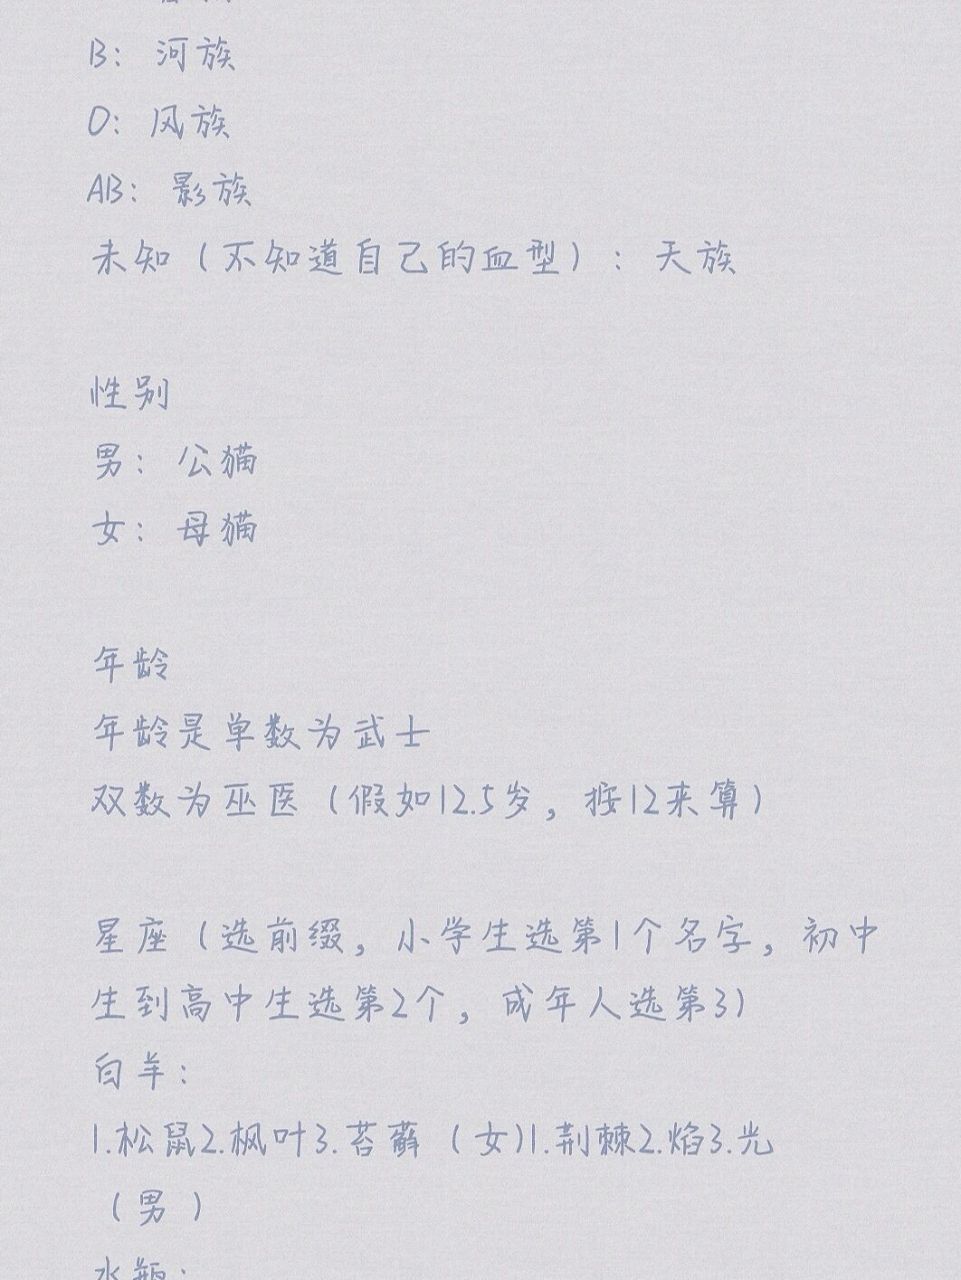 B：河族
O：风族
AB：影族
未知（不知道自己的血型）：天族
性别
男：公猫
女：母猫
年龄
年龄是单数为武士
双数为巫医（假如12.5岁，按12来算）
星座（选前缀，小学生选第1个名字，初中
生到高中生选第2个，成年人选第3）
白羊：
1.松鼠2.枫叶3.苔藓（女)1.荆棘2.焰3.光
（男）
水瓶：